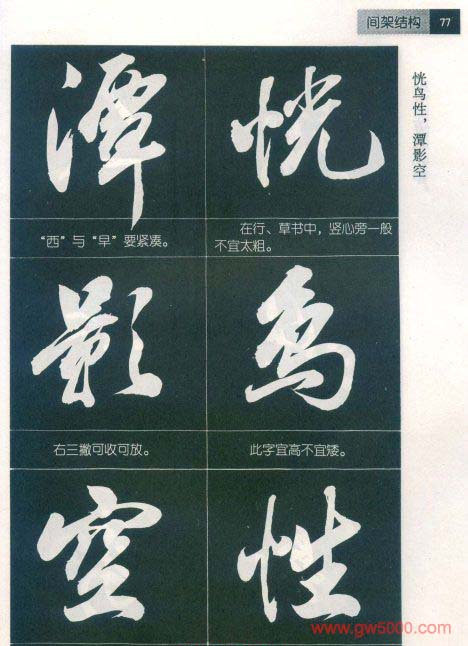 间架结构 77
恍鸟性，潭影空
恍
在行、草书中，竖心旁一般
不宜太粗。
鸟
此字宜高不宜矮。
性
潭
“西”与“早”要紧凑。
影
右三撇可收可放。
空
www.gw5000.com